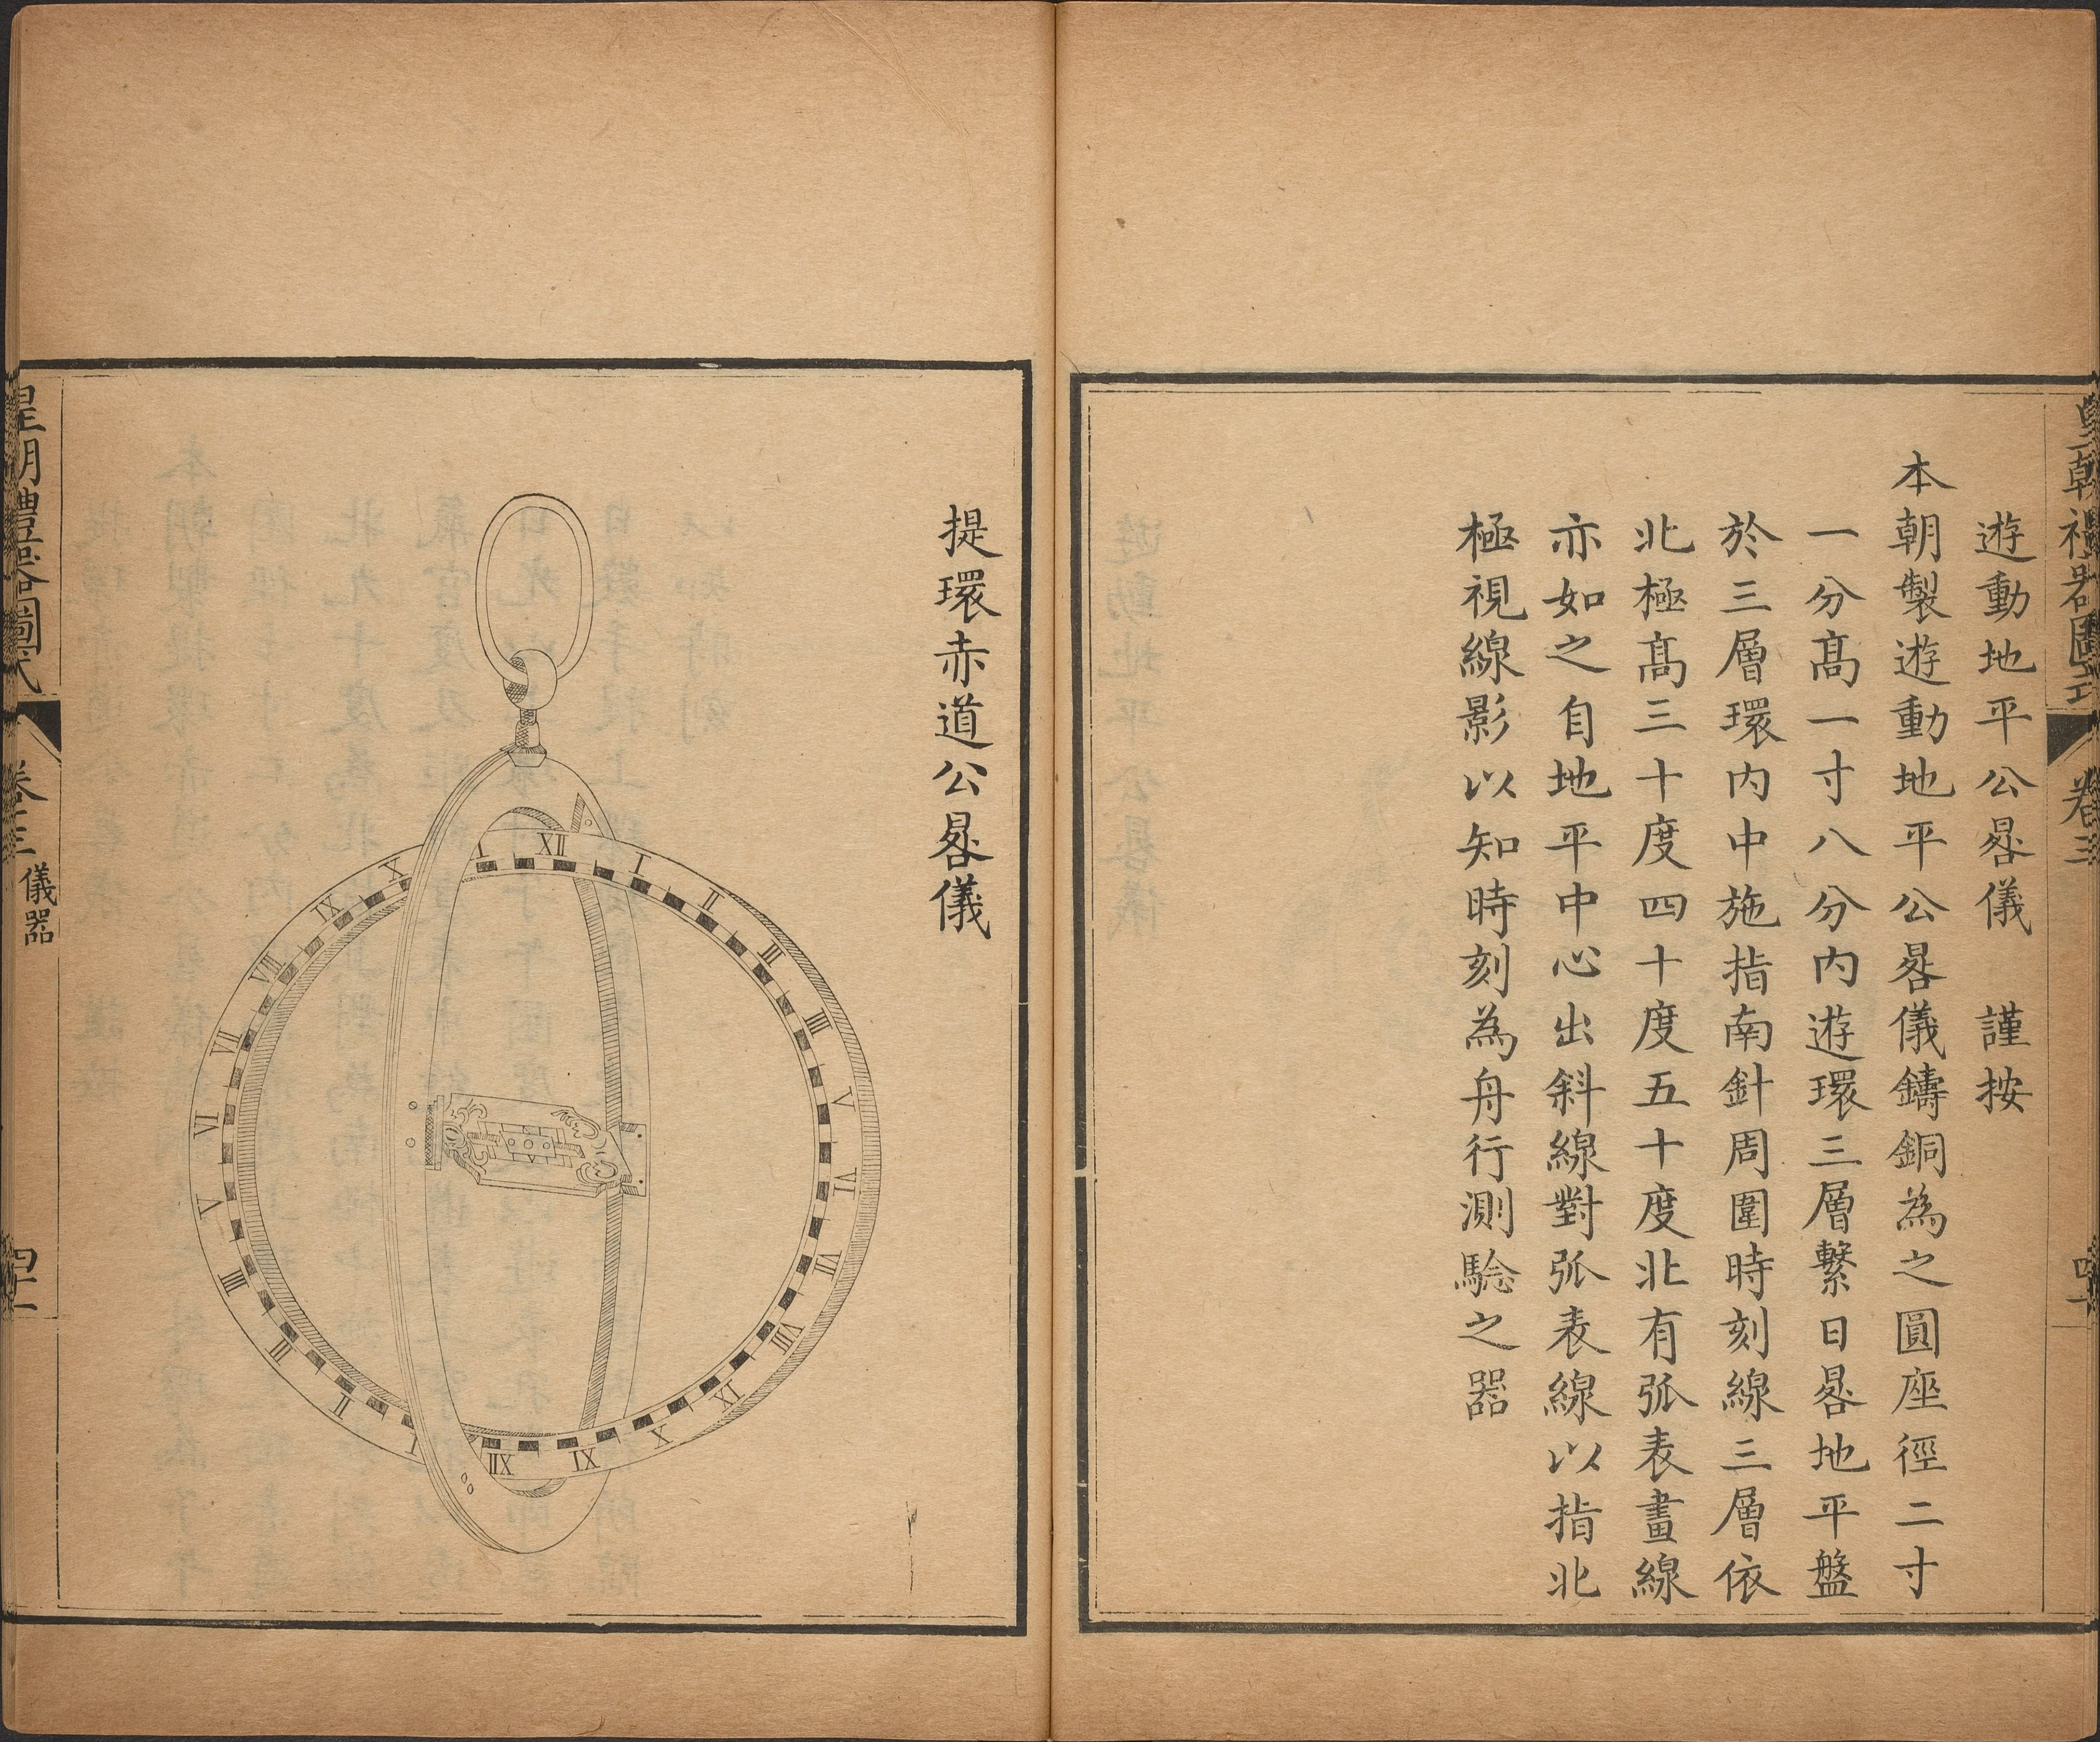 皇朝禮器圖式 卷三 四十
遊動地平公晷儀 謹按
本朝製遊動地平公晷儀鑄銅為之圓座徑二寸
一分高一寸八分内遊環三層繫日晷地平盤
於三層環内中施指南針周圍時刻線三層依
北極高三十度四十度五十度北有弧表畫線
亦如之自地平中心出斜線對弧表線以指北
極視線影以知時刻為舟行測驗之器
提環赤道公晷儀
XII
I
II
III
IIII
V
VI
VII
VIII
IX
X
XI
XII
I
II
III
IIII
V
VI
VII
VIII
IX
X
皇朝禮器圖式 卷三 儀器 四十一